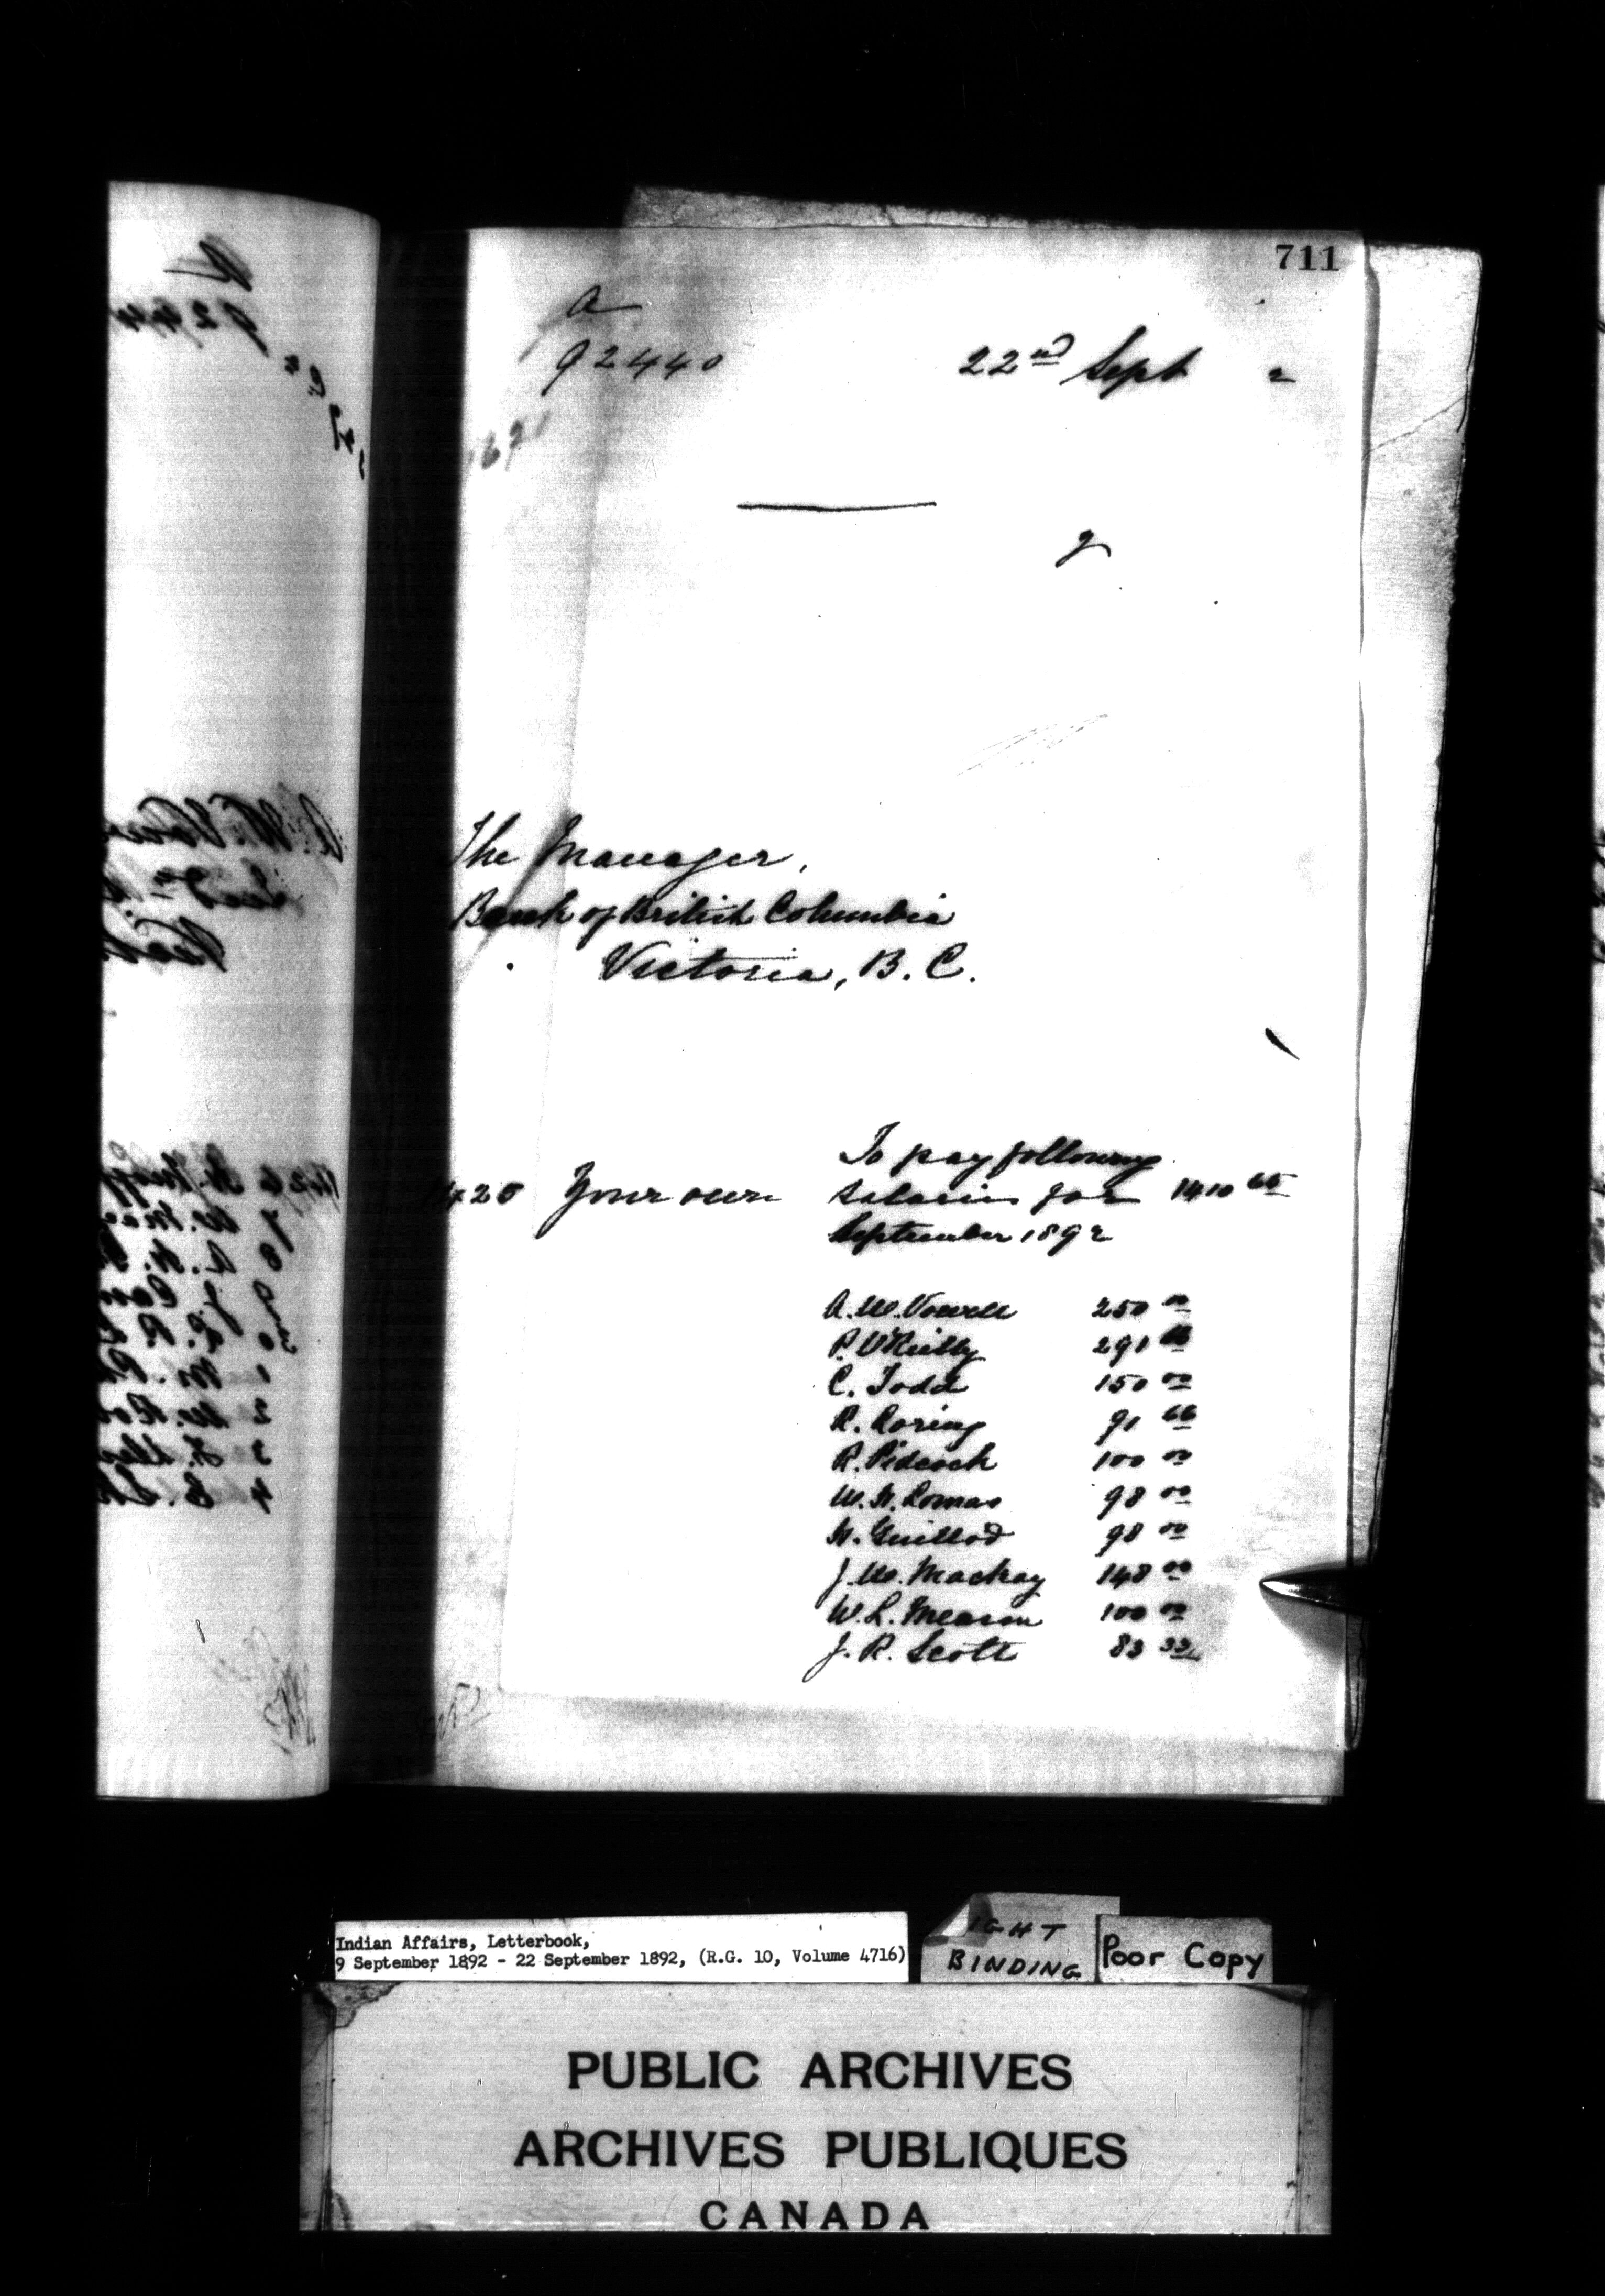 711
a
92440 22nd Sept 2
1671
g
The Manager,
Bank of British Columbia
Victoria, B.C.
To pay following
1425 Your own salaries for 1410 65
September 1892
A. W. Vowell 250 00
P. O'Reilly 291 66
C. Todd 150 00
R. Loring 91 66
R. Pidcock 100 00
W. H. Lomas 98 00
H. Guillod 98 00
J. W. Mackay 148 00
W. L. Meason 100 00
J. R. Scott 83 33
Indian Affairs, Letterbook,
9 September 1892 - 22 September 1892, (R.G. 10, Volume 4716)
IGHT
BINDING
Poor Copy
PUBLIC ARCHIVES
ARCHIVES PUBLIQUES
CANADA